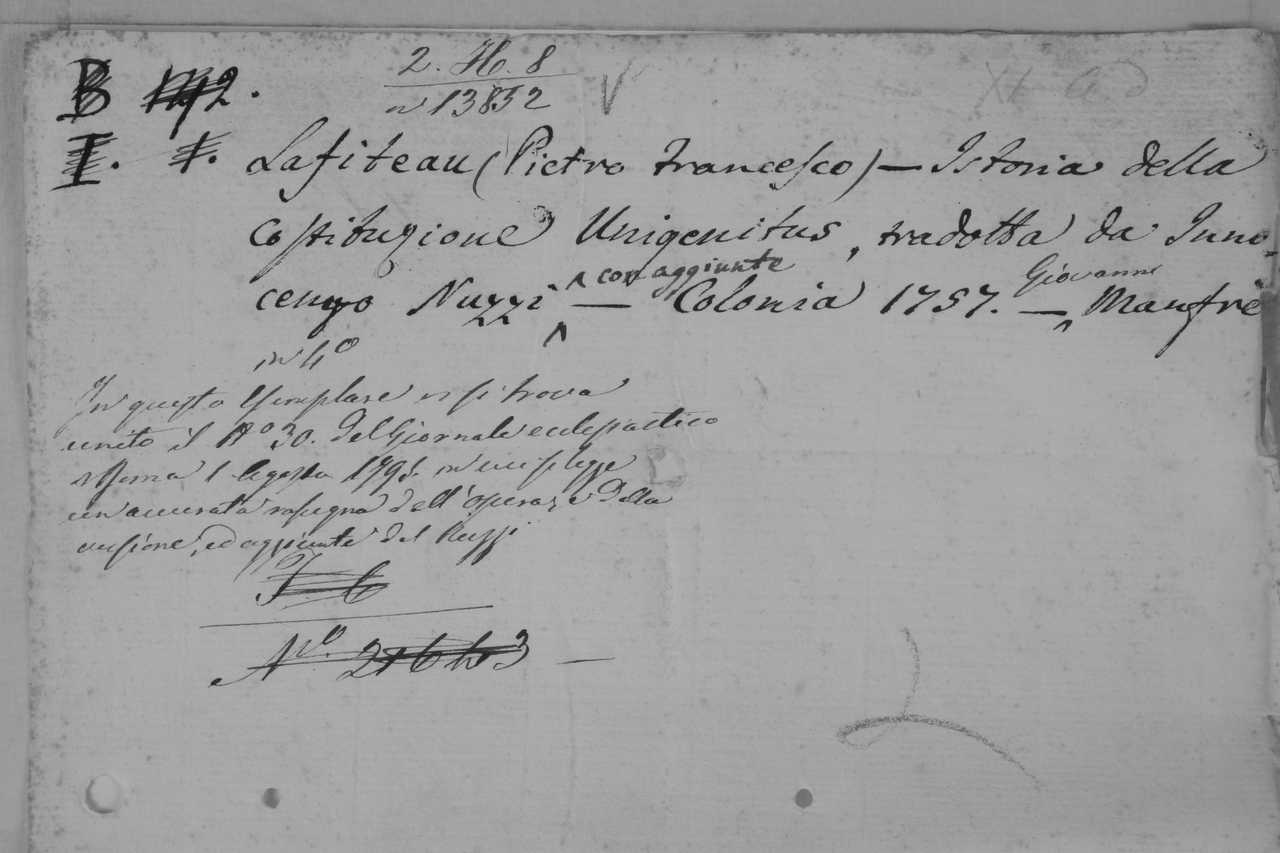 2. H. 8
n 13852
B
I. Lafiteau (Pietro Francesco) — Istoria della
Costituzione Unigenitus, tradotta da Inno-
cenzo Nuzzi con aggiunte — Colonia 1757. — Giovanni Manfrè
in 4º
In questo Esemplare vi si trova
unito il Nº 30. del Giornale ecclesiastico
di Roma 1 Agosto in cui si legge
un'accurata rassegna dell'opera, e della
versione, ed aggiunte del Nuzzi
Nº.